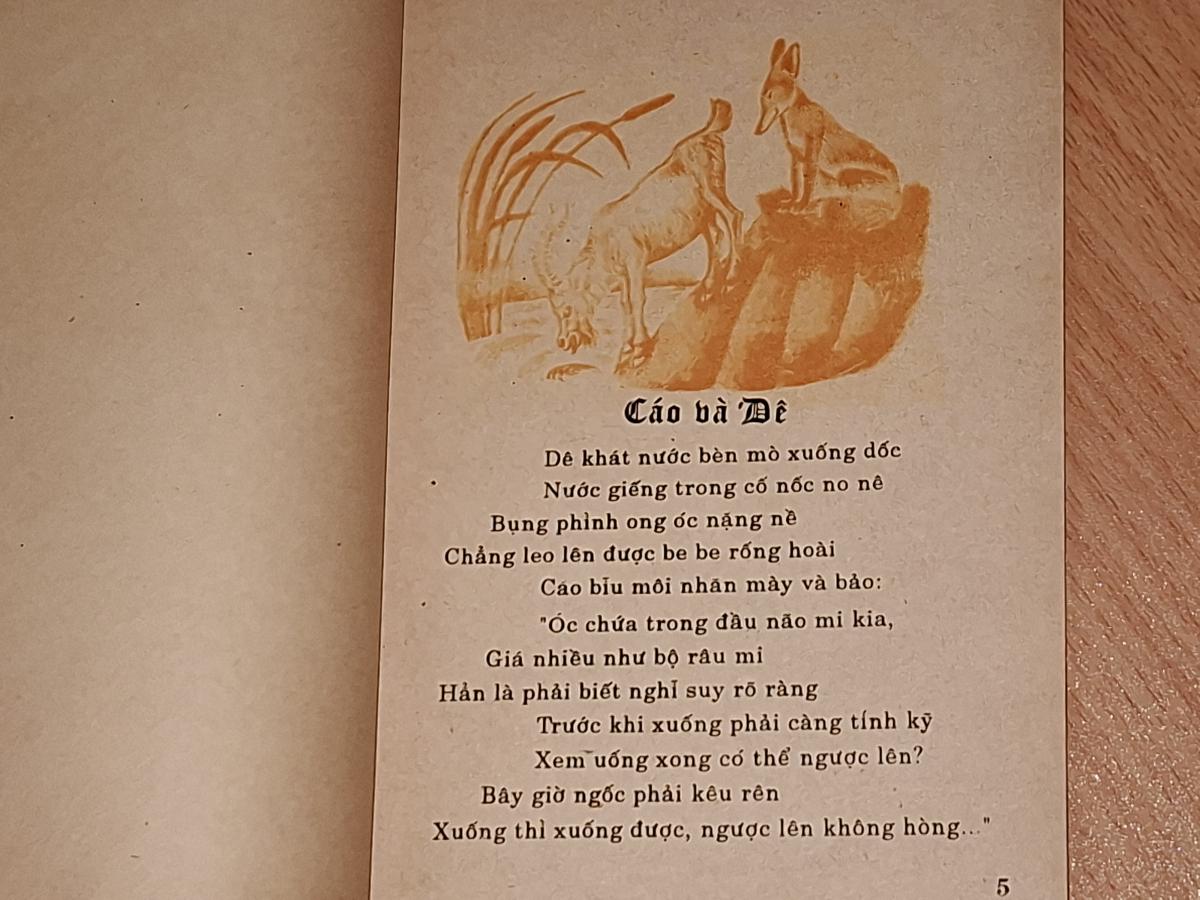 Cáo và Dê
Dê khát nước bèn mò xuống dốc
Nước giếng trong cố nốc no nê
Bụng phình ong óc nặng nề
Chẳng leo lên được be be rống hoài
Cáo bĩu môi nhăn mày và bảo:
"Óc chứa trong đầu não mi kia,
Giá nhiều như bộ râu mi
Hẳn là phải biết nghĩ suy rõ ràng
Trước khi xuống phải càng tính kỹ
Xem uống xong có thể ngược lên?
Bây giờ ngốc phải kêu rên
Xuống thì xuống được, ngược lên không hòng..."
5